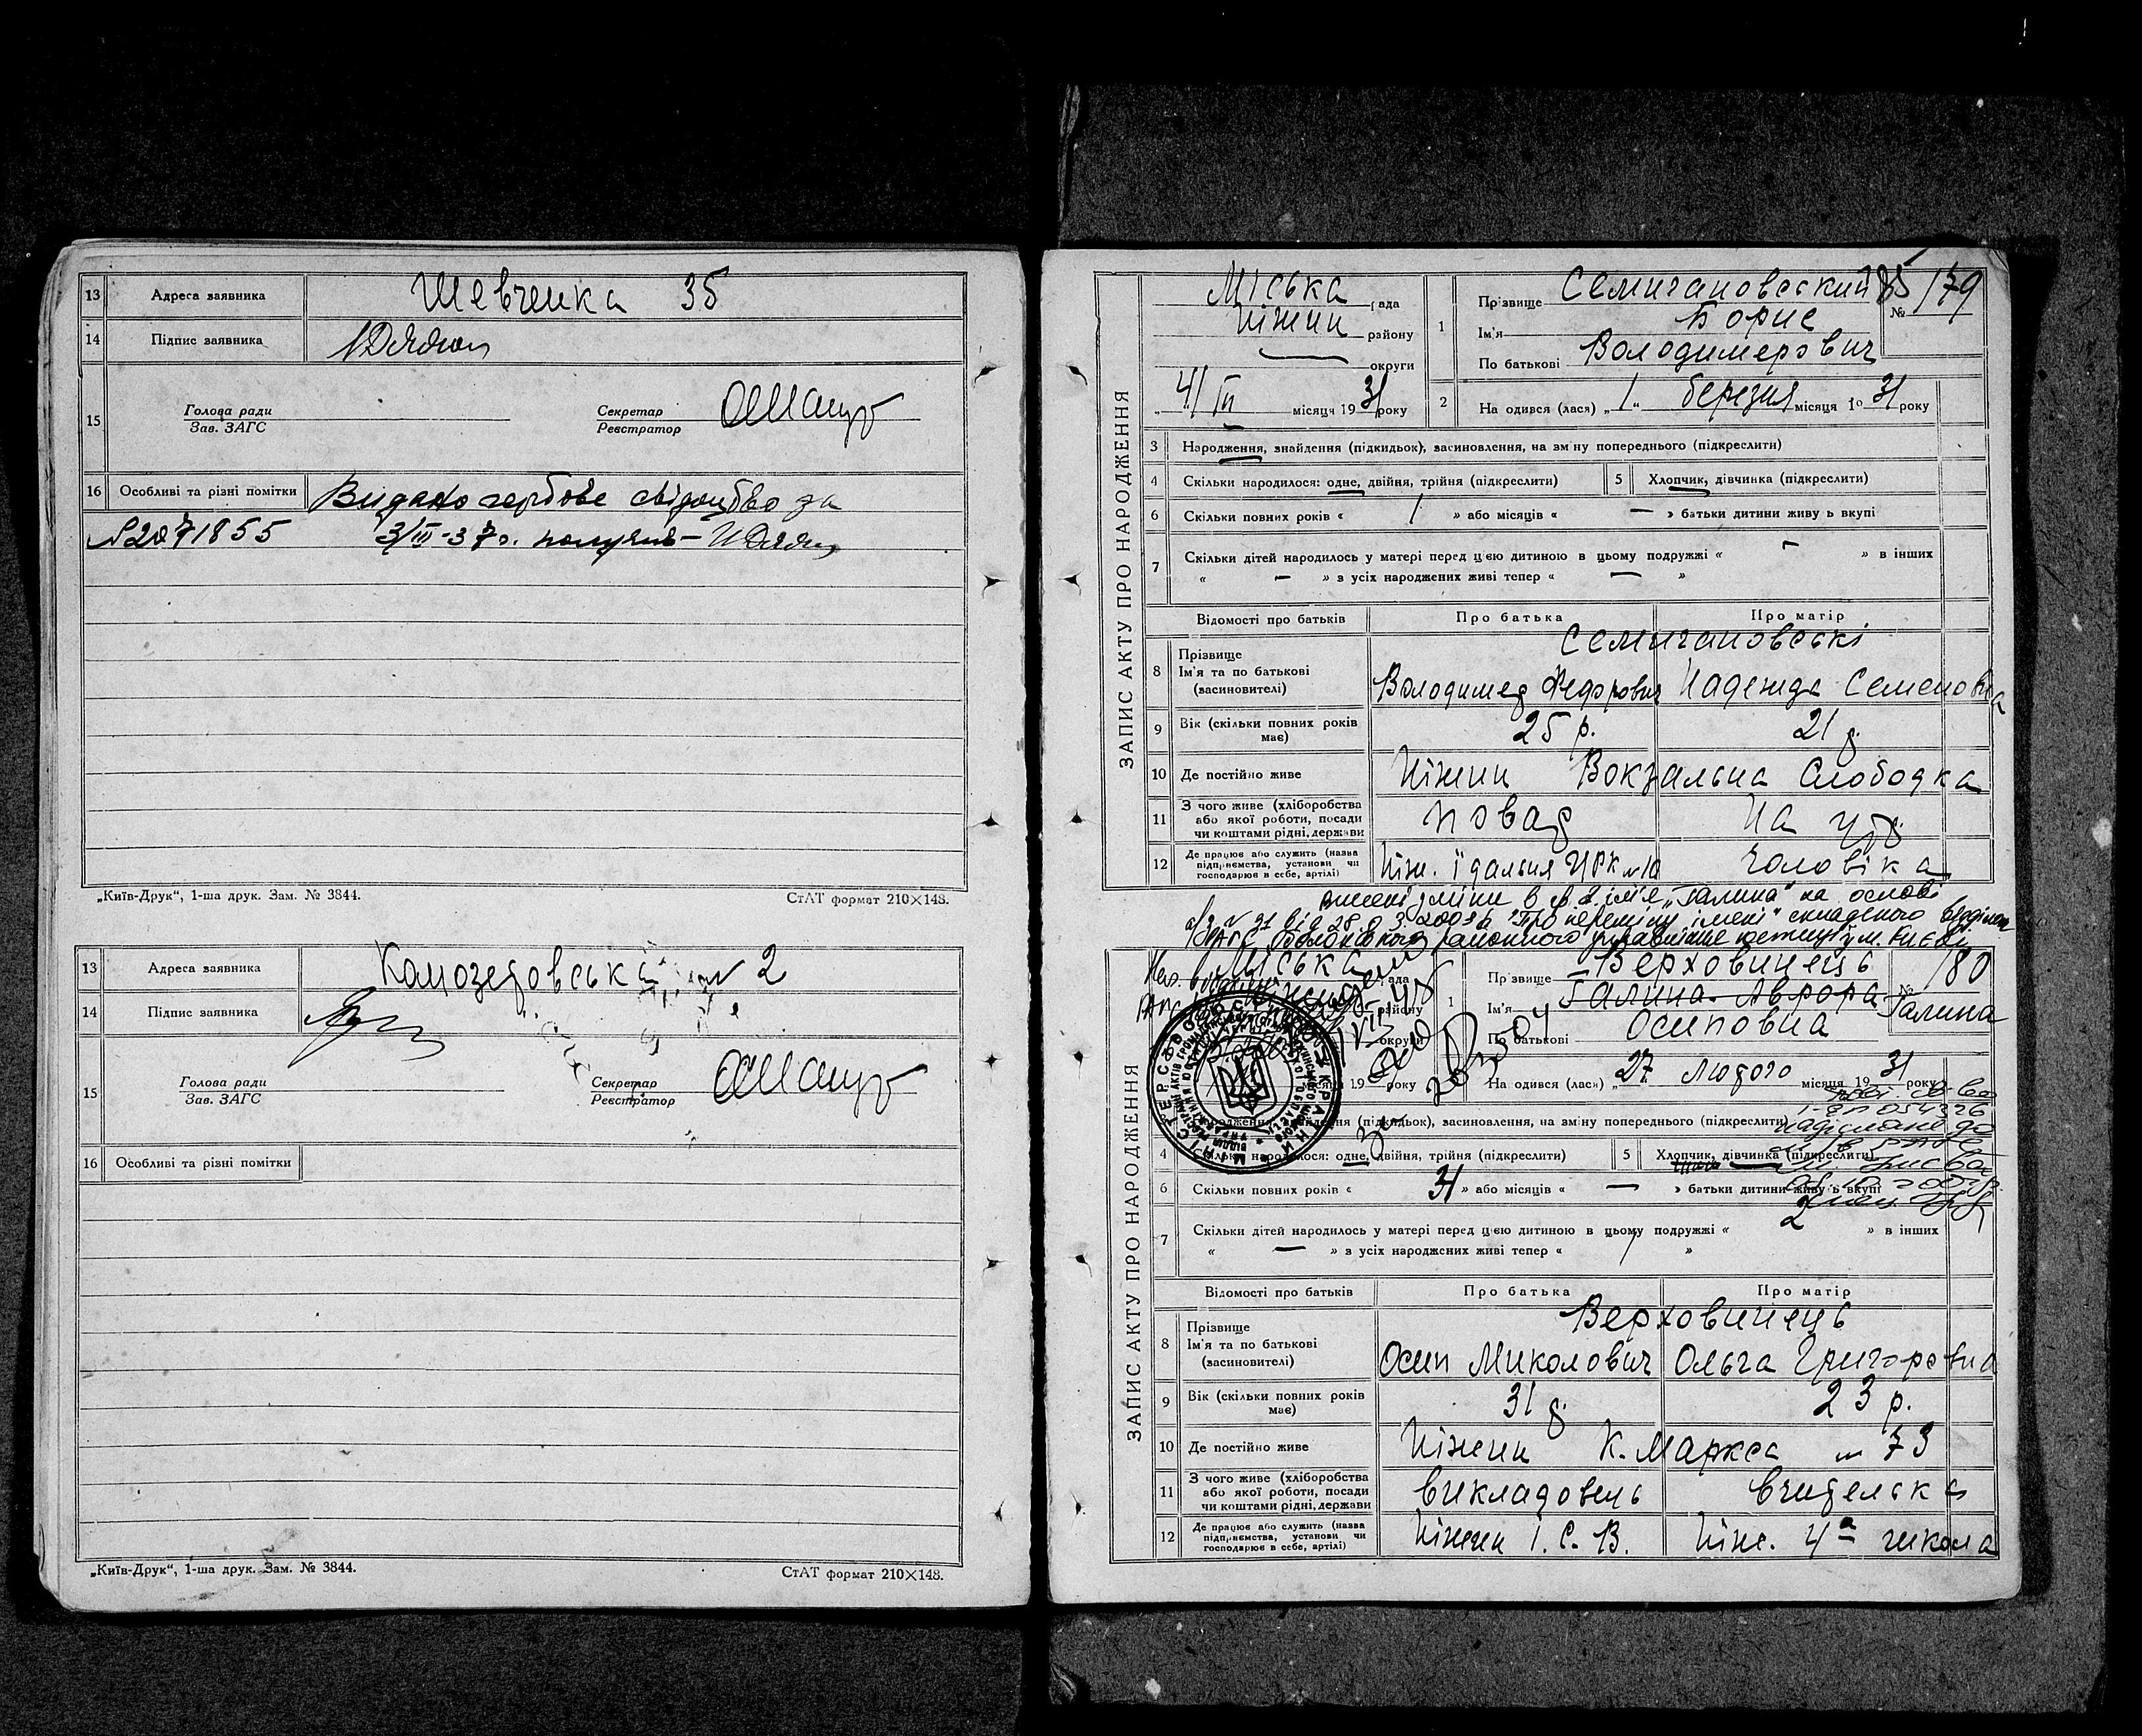 13 Адреса заявника Шевченка 35
14 Підпис заявника
15 Голова ради
Зав. ЗАГС
Секретар
Реєстратор
16 Особливі та різні помітки Видано гербове свідоцтво за
№2071855 3/III-37 р.
„Київ-Друк“, 1-ша друк. Зам. № 3844. СтАТ формат 210×148.
13 Адреса заявника № 2
14 Підпис заявника
15 Голова ради
Зав. ЗАГС
Секретар
Реєстратор
16 Особливі та різні помітки
„Київ-Друк“, 1-ша друк. Зам. № 3844. СтАТ формат 210×148.
ЗАПИС АКТУ ПРО НАРОДЖЕННЯ
Міська рада
Ніжин району
округи
4/III місяця 1931 року
1 Прізвище Семичановський
Ім'я Борис
По батькові Володимерович
№ 179
2 На одився (лася) „1“ березня місяця 1931 року
3 Народження, знайдення (підкидьок), засиновлення, на зміну попереднього (підкреслити)
4 Скільки народилося: одне, двійня, трійня (підкреслити) 5 Хлопчик, дівчинка (підкреслити)
6 Скільки повних років « 1 » або місяців « — » батьки дитини живуть вкупі
7 Скільки дітей народилось у матері перед цією дитиною в цьому подружжі « — » в інших
« — » з усіх народжених живі тепер « — »
Відомості про батьків Про батька Про матір
8 Прізвище Семичановські
Ім'я та по батькові
(засиновителі) Володимер Федорович Надежда Семеновна
9 Вік (скільки повних років
має) 25 р. 21 р.
10 Де постійно живе Ніжин Вокзальна Слободка
11 З чого живе (хліборобства
або якої роботи, посади
чи коштами рідні, держави повар На утр.
12 Де працює або служить (назва
підприємства, установи чи
господарює в себе, артілі) Ніж. їдальня ЦРК №10 чоловіка
внесені зміни в ім'я „Галина“ на основі
а/з № 21 від 28.03.2003 р. "Про переміну імені" складеного відділом
РАГС Оболонського районного управління юстиції у м. Києві
ЗАПИС АКТУ ПРО НАРОДЖЕННЯ
Міська рада
району
округи
місяця 19 року
1 Прізвище Верховинець
Ім'я Галина-Аврора Галина
По батькові Осиповна
№ 180
На одився (лася) „27 лютого місяця 1931 року
народження, знайдення (підкидьок), засиновлення, на зміну попереднього (підкреслити)
4 Скільки народилося: одне, двійня, трійня (підкреслити) 5 Хлопчик, дівчинка (підкреслити)
6 Скільки повних років « 31 » або місяців « — » батьки дитини живуть вкупі
7 Скільки дітей народилось у матері перед цією дитиною в цьому подружжі « 2 » в інших
« — » з усіх народжених живі тепер « 1 »
Відомості про батьків Про батька Про матір
8 Прізвище Верховинець
Ім'я та по батькові
(засиновителі) Осип Миколович Ольга Григоровна
9 Вік (скільки повних років
має) 31 р. 23 р.
10 Де постійно живе Ніжин К. Маркса № 73
11 З чого живе (хліборобства
або якої роботи, посади
чи коштами рідні, держави викладовець вчителька
12 Де працює або служить (назва
підприємства, установи чи
господарює в себе, артілі) Ніжин І.С.В. Ніж. 4а школа